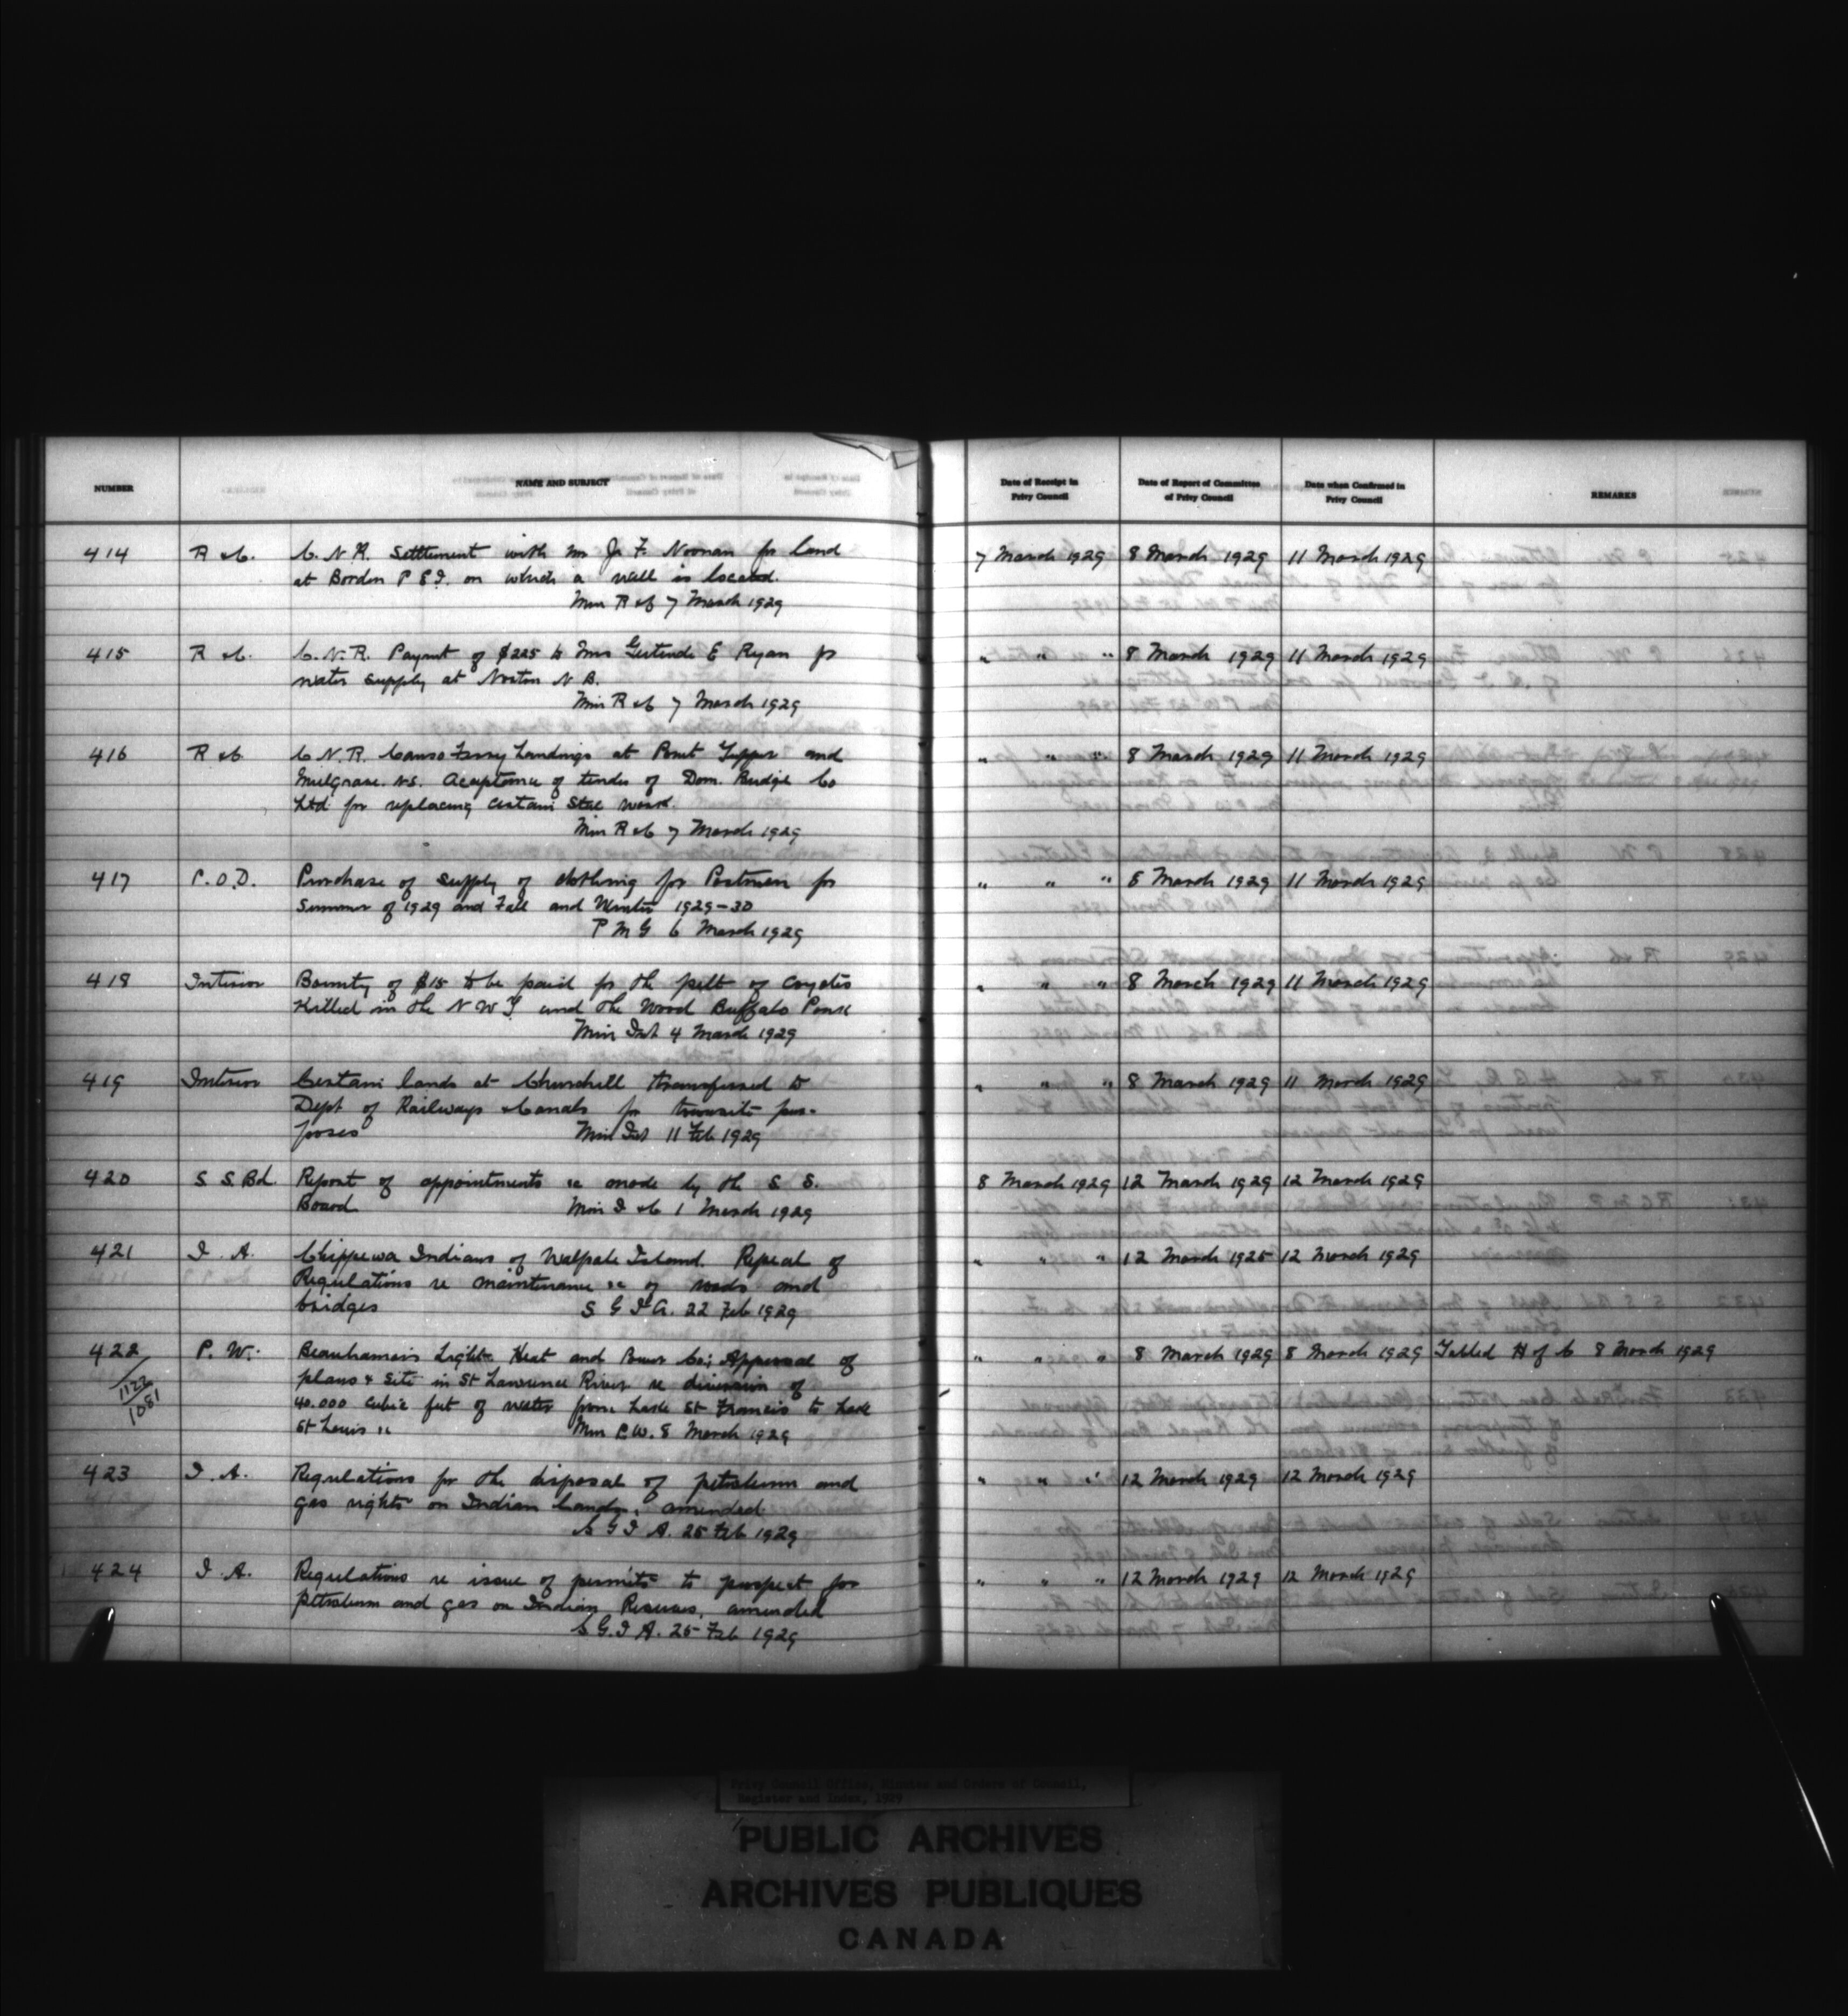 NUMBER NAME AND SUBJECT Date of Receipt in Privy Council Date of Report of Committee of Privy Council Date when Confirmed in Privy Council REMARKS
414 R &C. C. N. R. Settlement with Mr J. F. Noonan for land 7 March 1929 8 March 1929 11 March 1929
at Borden P E I. on which a well is located.
Min R &C 7 March 1929
415 R &C. C. N. R. Paymt of $225 to Mrs Gertrude E Ryan for " " " 8 March 1929 11 March 1929
water supply at Norton N B.
Min R &C 7 March 1929
416 R &C C N. R. Canso Ferry Landings at Point Tupper and " " " 8 March 1929 11 March 1929
Mulgrave. NS. Acceptance of tender of Dom. Bridge Co
Ltd for replacing certain steel work.
Min R &C 7 March 1929
417 P. O. D. Purchase of supply of clothing for Postmen for " " " 8 March 1929 11 March 1929
Summer of 1929 and Fall and Winter 1929-30
P M G 6 March 1929
418 Interior Bounty of $15 to be paid for the pelt of Coyotes " " " 8 March 1929 11 March 1929
killed in the N W T and the Wood Buffalo Park
Min Int 4 March 1929
419 Interior Certain lands at Churchill transferred to " " " 8 March 1929 11 March 1929
Dept of Railways &Canals for townsite pur-
poses Min Int 11 Feb 1929
420 S. S. Bd. Report of appointments &c made by the S. S. 8 March 1929 12 March 1929 12 March 1929
Board Min I &C 1 March 1929
421 I. A. Chippewa Indians of Walpole Island. Repeal of " " " 12 March 1925 12 March 1929
Regulations re maintenance &c of roads and
bridges S G I A. 22 Feb 1929
422 P. W. Beauharnois Light Heat and Power Co; Approval of " " " 8 March 1929 8 March 1929 Tabled H of C 8 March 1929
1122
1081
plans & site in St Lawrence River re diversion of
40.000 cubic feet of water from Lake St Francis to Lake
St Louis &c Min P. W. 8 March 1929
423 I. A. Regulations for the disposal of petroleum and " " " 12 March 1929 12 March 1929
gas rights on Indian Lands, amended
S G I A. 25 Feb 1929
424 I. A. Regulations re issue of permits to prospect for " " " 12 March 1929 12 March 1929
petroleum and gas on Indian Reserves, amended
S G. I A. 25 Feb 1929
Privy Council Office, Minutes and Orders of Council,
Register and Index, 1929
PUBLIC ARCHIVES
ARCHIVES PUBLIQUES
CANADA